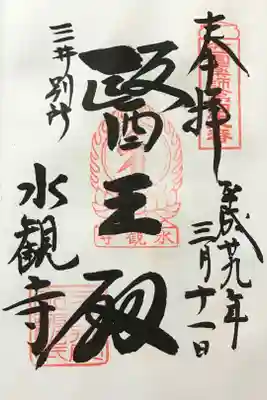 奉拝
平成廿九年
三月十一日
醫王殿
三井別所
水観寺
水観寺